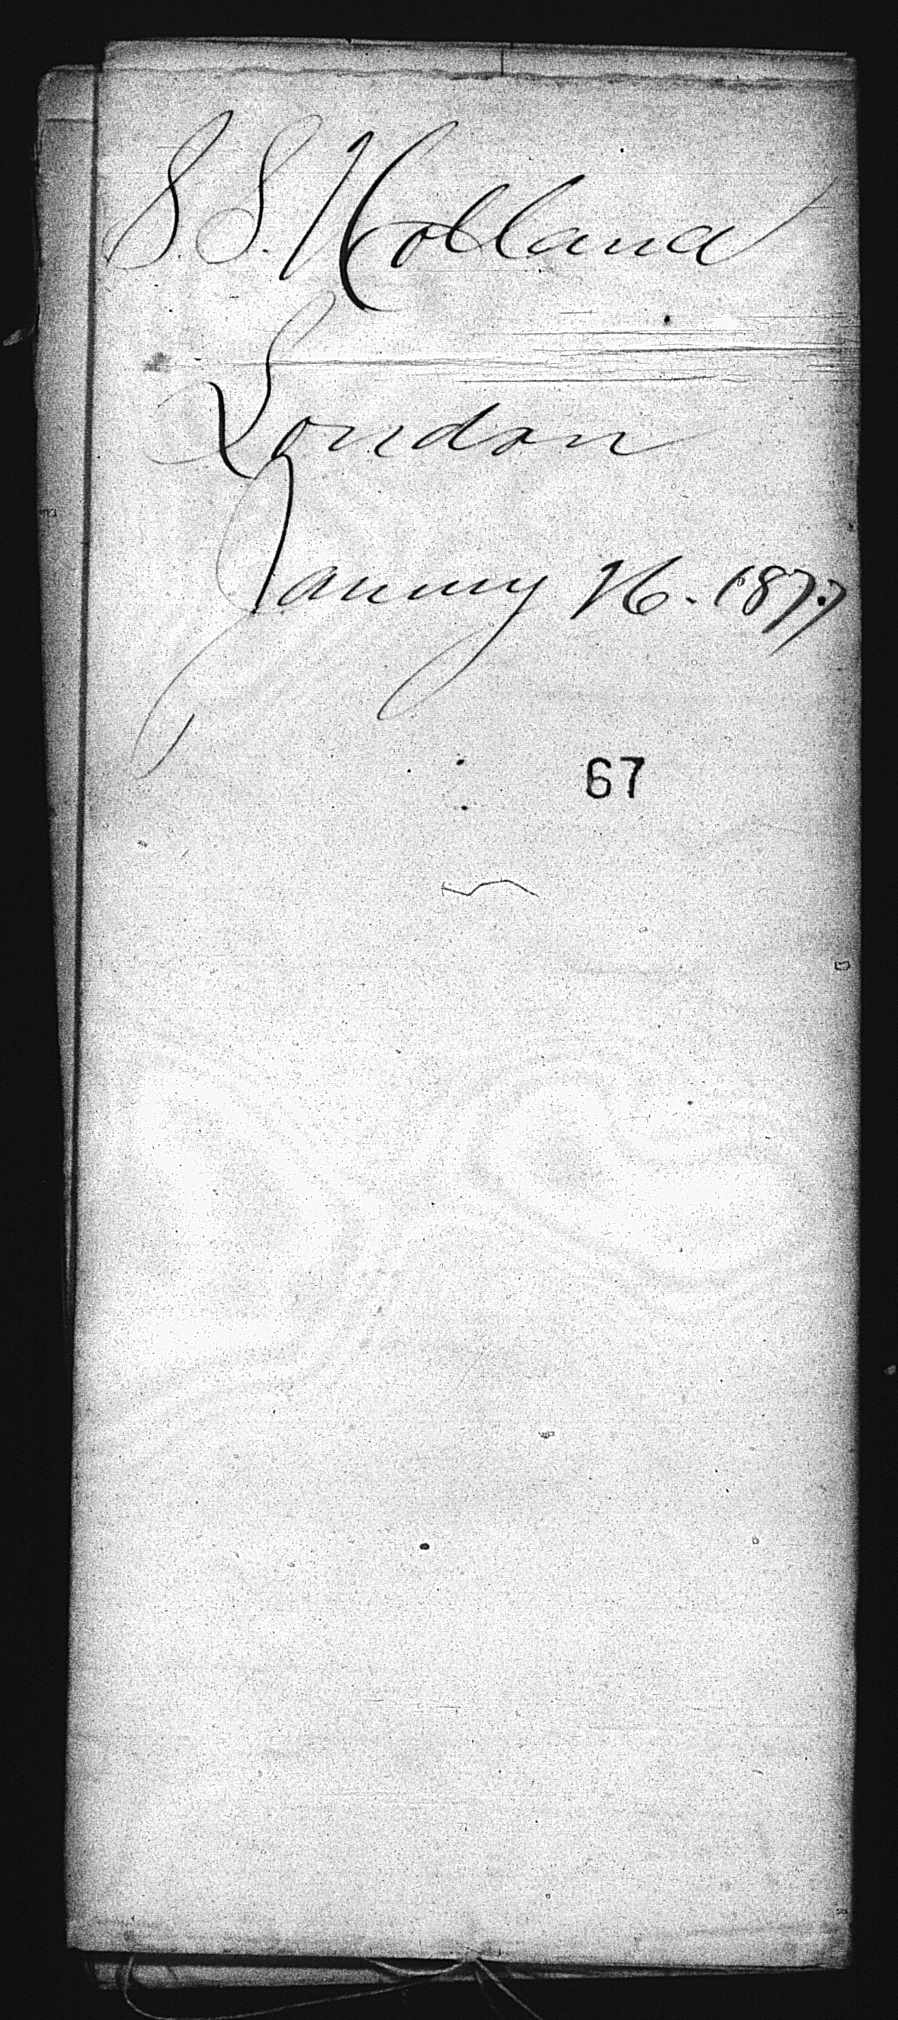 S. S. Holland
London
January 26. 1877
67